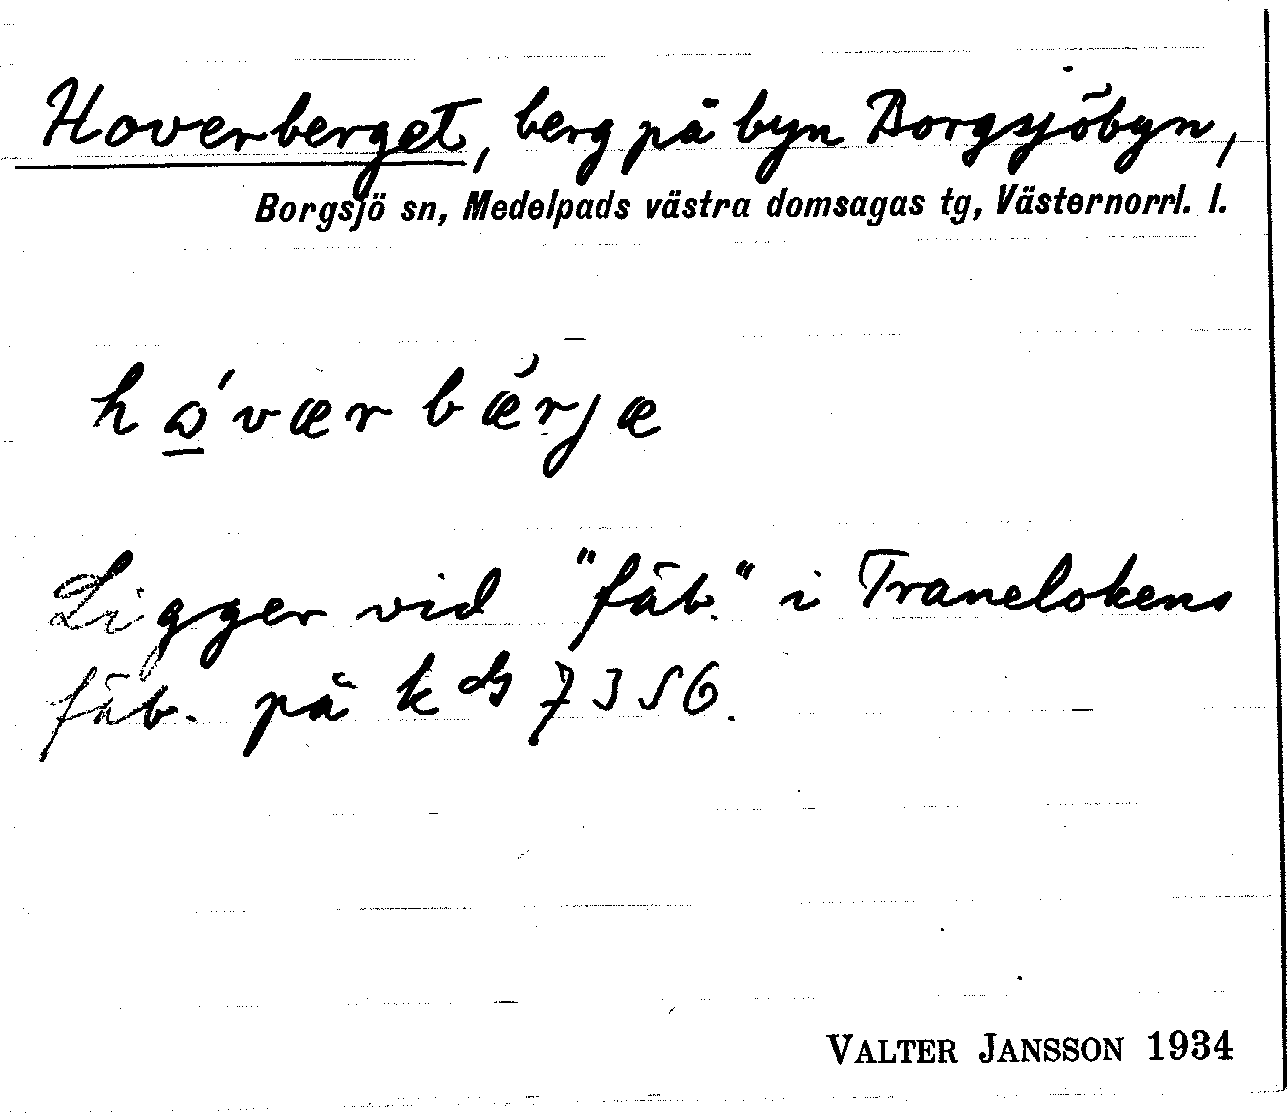 Hoverberget, berg på byn Borgsjöbyn,
Borgsjö sn, Medelpads västra domsagas tg, Västernorrl. l.
Ligger vid "fäb." i Tranelokens
fäb. på k 7356.
VALTER JANSSON 1934